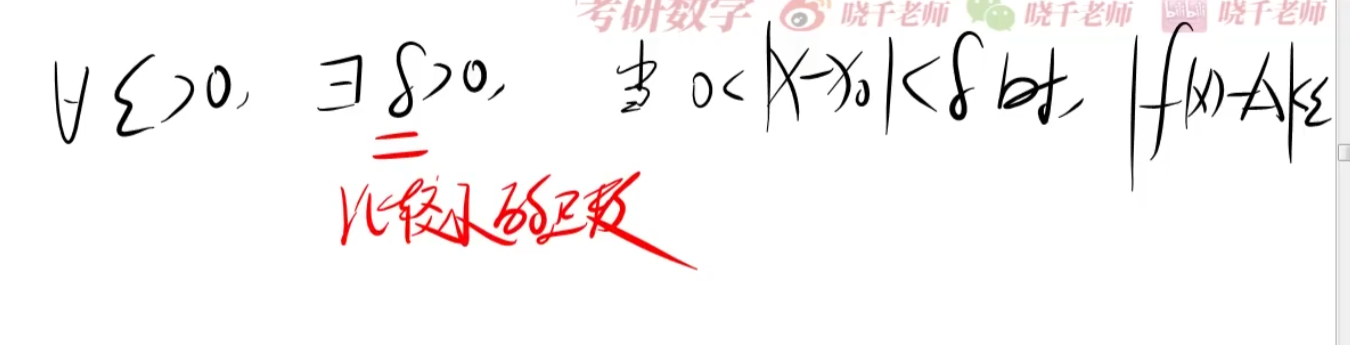 考研数学 晓千老师 晓千老师 晓千老师
∀ ε>0, ∃ δ>0, 当 0<|x-x₀|<δ 时, |f(x)-A|<ε
比较小的正数